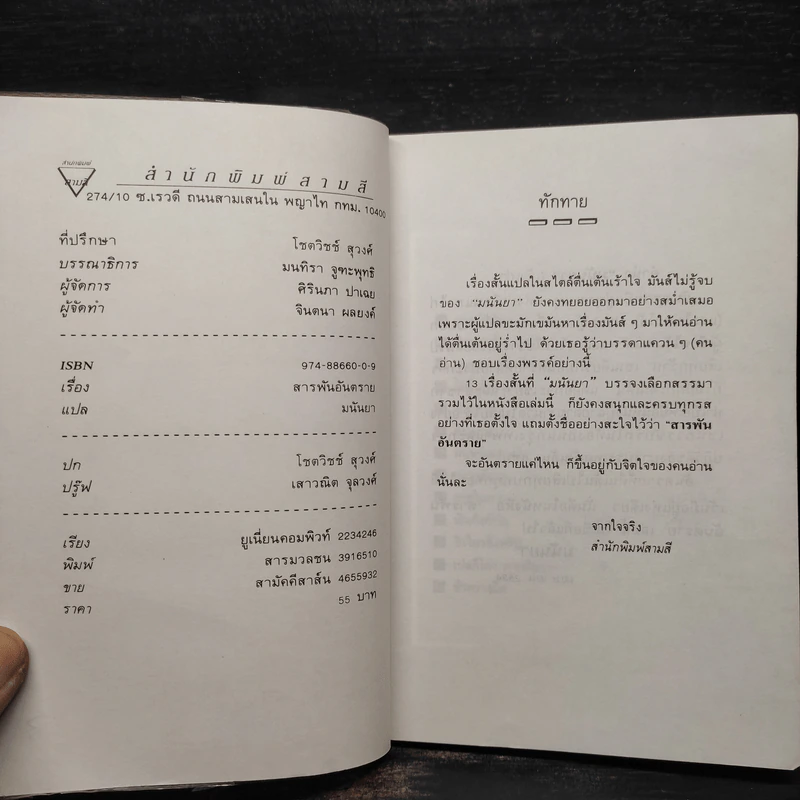 สำนักพิมพ์
สามสี
สำนักพิมพ์สามสี
274/10 ซ.เรวดี ถนนสามเสนใน พญาไท กทม. 10400
ที่ปรึกษา โชตวิชช์ สุวงค์
บรรณาธิการ มนทิรา จูฑะพุทธิ
ผู้จัดการ ศิรินภา ปาเฉย
ผู้จัดทำ จินตนา ผลยงค์
ISBN 974-88660-0-9
เรื่อง สารพันอันตราย
แปล มนันยา
ปก โชตวิชช์ สุวงค์
ปรู๊ฟ เสาวณิต จุลวงค์
เรียง ยูเนี่ยนคอมพิวท์ 2234246
พิมพ์ สารมวลชน 3916510
ขาย สามัคคีสาส์น 4655932
ราคา 55 บาท
ทักทาย
เรื่องสั้นแปลในสไตล์ตื่นเต้นเร้าใจ มันส์ไม่รู้จบ
ของ "มนันยา" ยังคงทยอยออกมาอย่างสม่ำเสมอ
เพราะผู้แปลขะมักเขม้นหาเรื่องมันส์ ๆ มาให้คนอ่าน
ได้ตื่นเต้นอยู่ร่ำไป ด้วยเธอรู้ว่าบรรดาแควน ๆ (คน
อ่าน) ชอบเรื่องพรรค์อย่างนี้
13 เรื่องสั้นที่ "มนันยา" บรรจงเลือกสรรมา
รวมไว้ในหนังสือเล่มนี้ ก็ยังคงสนุกและครบทุกรส
อย่างที่เธอตั้งใจ แถมตั้งชื่ออย่างสะใจไว้ว่า "สารพัน
อันตราย"
จะอันตรายแค่ไหน ก็ขึ้นอยู่กับจิตใจของคนอ่าน
นั่นละ
จากใจจริง
สำนักพิมพ์สามสี